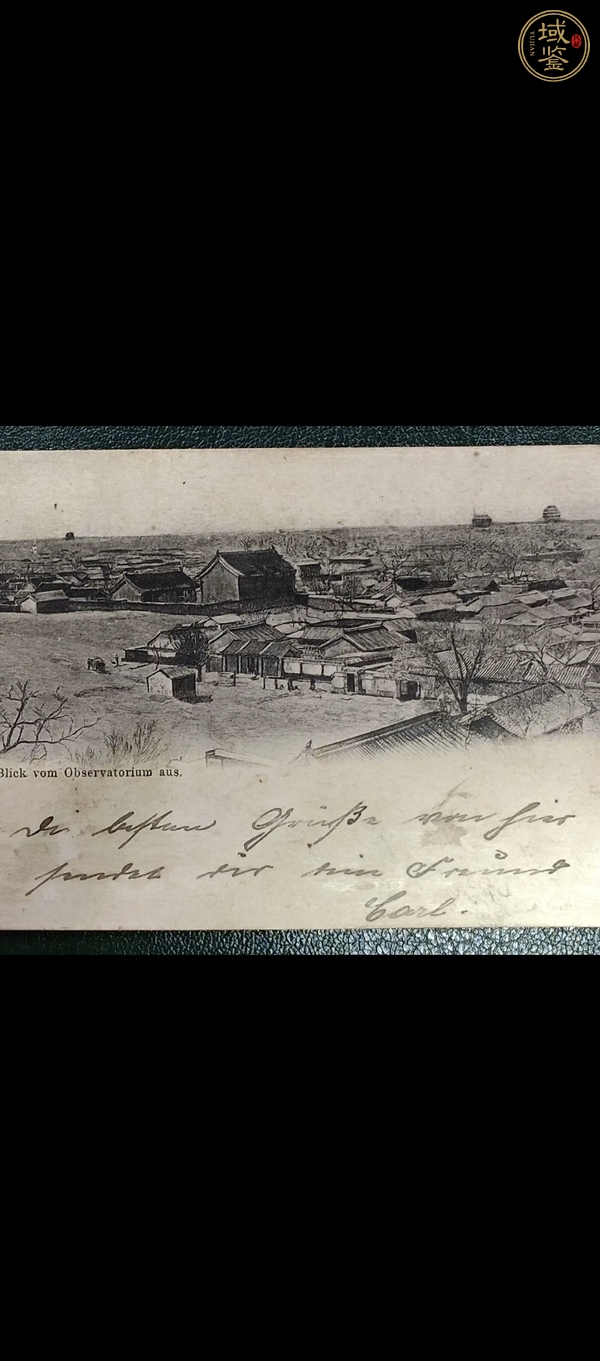 域鉴
YUJIAN
Blick vom Observatorium aus.
Die besten Grüße von hier
sendet dir dein Freund
Carl.